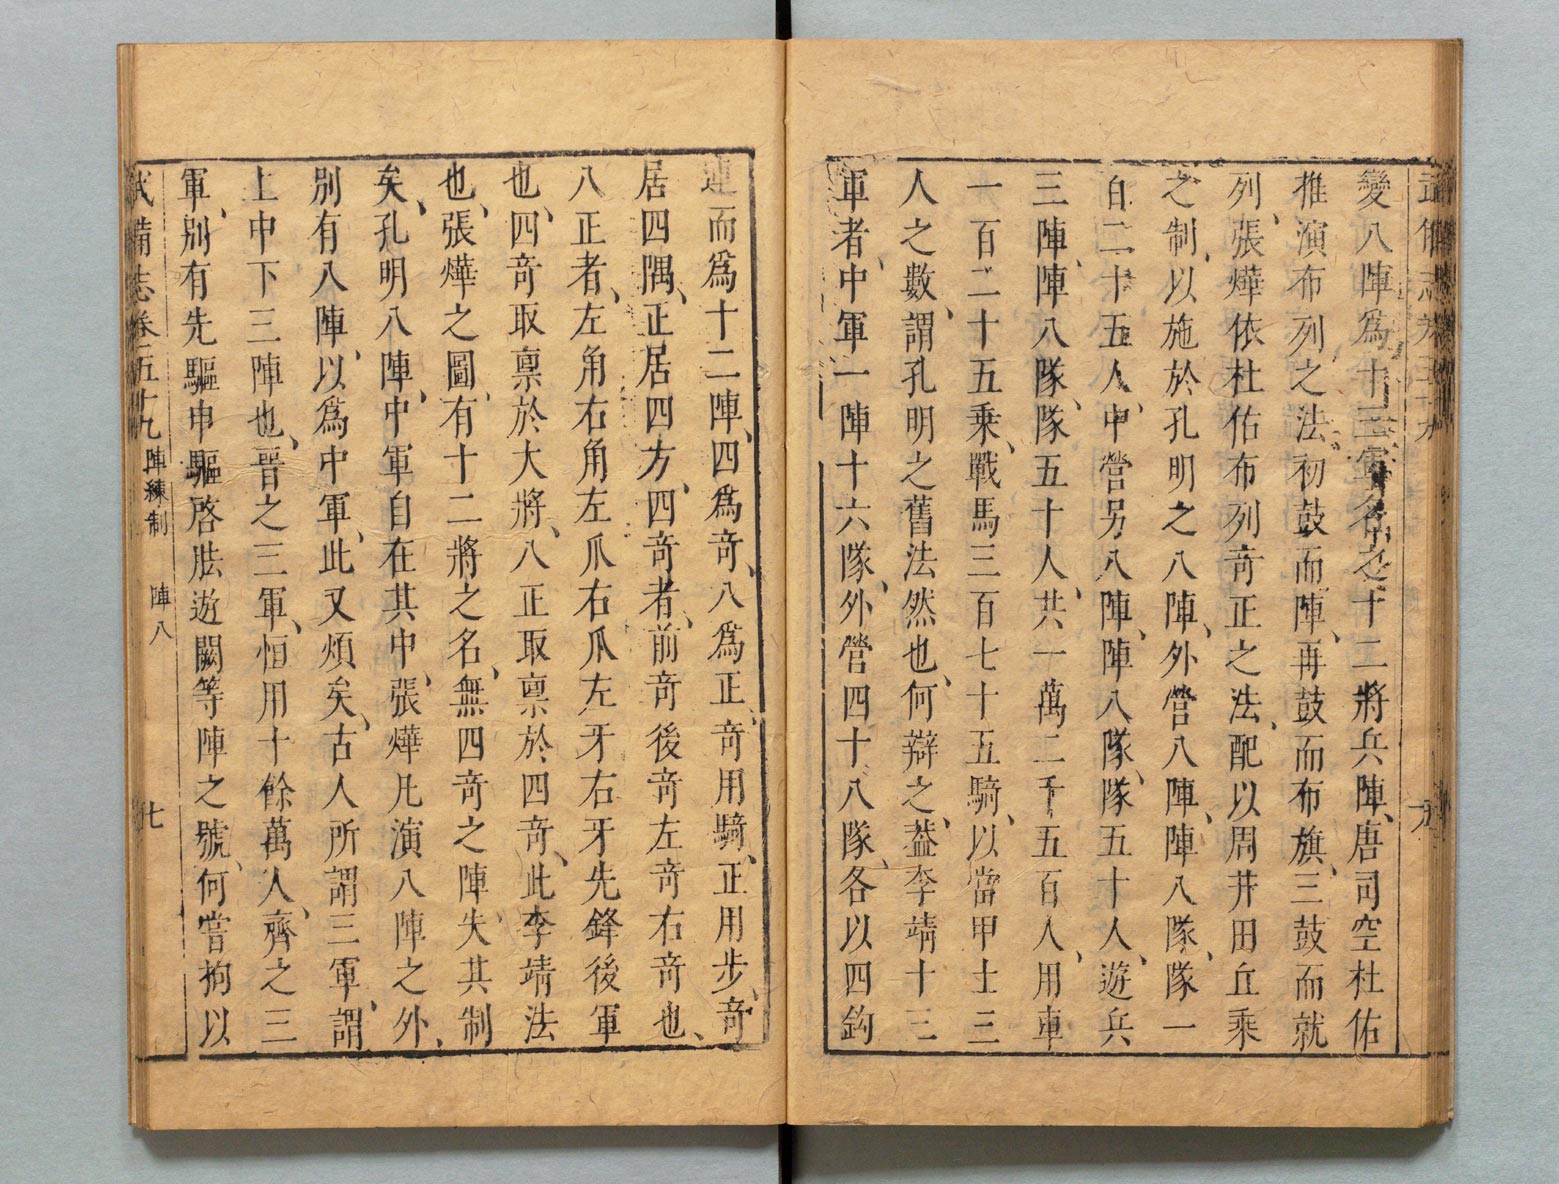 武備志卷五十九
變八陣爲十三軍各之十二將兵陣、唐司空杜佑
推演布列之法、初鼓而陣、再鼓而布旗、三鼓而就
列、張燁依杜佑布列竒正之法、配以周井田丘乘
之制、以施於孔明之八陣、外營八陣、陣八隊、隊一
百二十五人、中營另八陣、陣八隊、隊五十人、遊兵
三陣、陣八隊、隊五十人、共一萬二千五百人、用車
一百二十五乘、戰馬三百七十五騎、以當甲士三
人之數、謂孔明之舊法然也、何辯之、葢李靖十三
軍者、中軍一陣十六隊、外營四十八隊、各以四鈎
連而爲十二陣、四爲竒、八爲正、竒用騎、正用步、竒
居四隅、正居四方、四竒者、前竒後竒左竒右竒也、
八正者、左角右角左爪右爪左牙右牙先鋒後軍
也、四竒取禀於大將、八正取禀於四竒、此李靖法
也、張燁之圖、有十二將之名、無四竒之陣、失其制
矣、孔明八陣、中軍自在其中、張燁凡演八陣之外、
別有八陣、以爲中軍、此又煩矣、古人所謂三軍、謂
上中下三陣也、晉之三軍、恒用十餘萬人、齊之三
軍、別有先驅申驅啓胠遊闕等陣之號、何嘗拘以
武備志卷五十九 陣練制 陣八 七